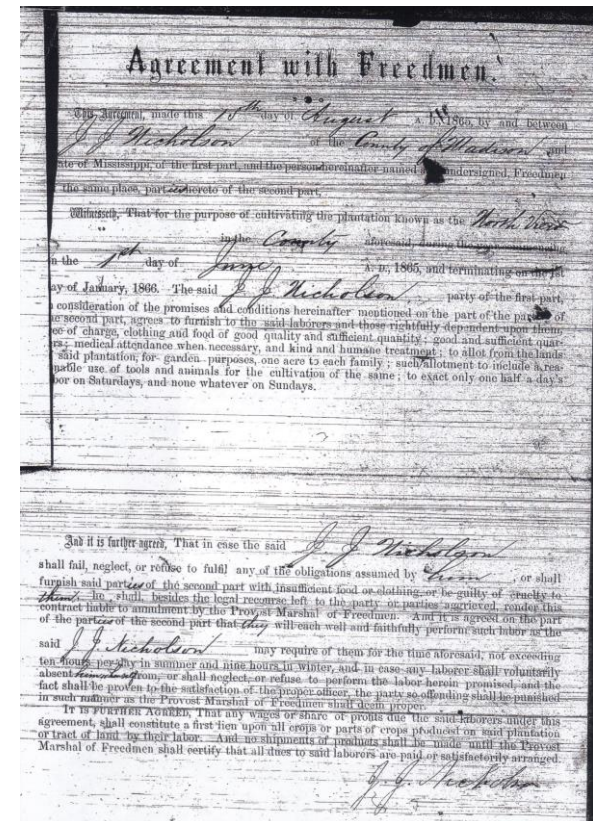 Agreement with Freedmen.
This Agreement, made this 15th day of August A. D. 1865, by and between
J J Nicholson of the County of Madison and
ate of Mississippi, of the first part, and the person hereinafter named undersigned Freedmen
the same place, parties hereto of the second part,
Witnesseth, That for the purpose of cultivating the plantation known as the North
in the County aforesaid, during the
n the 1st day of June A. D., 1865, and terminating on the 1st
ay of January, 1866. The said J J Nicholson party of the first part,
consideration of the promises and conditions hereinafter mentioned on the part of the parties of
e second part, agrees to furnish to the said laborers and those rightfully dependent upon them,
ee of charge, clothing and food of good quality and sufficient quantity; good and sufficient quar-
rs; medical attendance when necessary, and kind and humane treatment; to allot from the lands
said plantation, for garden purposes, one acre to each family; such allotment to include a rea-
nable use of tools and animals for the cultivation of the same; to exact only one half a day's
bor on Saturdays, and none whatever on Sundays.
And it is further agreed, That in case the said J. J Nicholson
shall fail, neglect, or refuse to fulfil any of the obligations assumed by him, or shall
furnish said parties of the second part with insufficient food or clothing, or be guilty of cruelty to
them, he shall, besides the legal recourse left to the party or parties aggrieved, render this
contract liable to annulment by the Provost Marshal of Freedmen. And it is agreed on the part
of the parties of the second part that they will each well and faithfully perform such labor as the
said J J. Nicholson may require of them for the time aforesaid, not exceeding
ten hours per day in summer and nine hours in winter, and in case any laborer shall voluntarily
absent from, or shall neglect, or refuse to perform the labor herein promised, and the
fact shall be proven to the satisfaction of the proper officer, the party so offending shall be punished
in such manner as the Provost Marshal of Freedmen shall deem proper.
IT IS FURTHER AGREED, That any wages or share of profits due the said laborers under this
agreement, shall constitute a first lien upon all crops or parts of crops produced on said plantation
or tract of land by their labor. And no shipments of products shall be made until the Provost
Marshal of Freedmen shall certify that all dues to said laborers are paid or satisfactorily arranged.
J. J. Nicholson